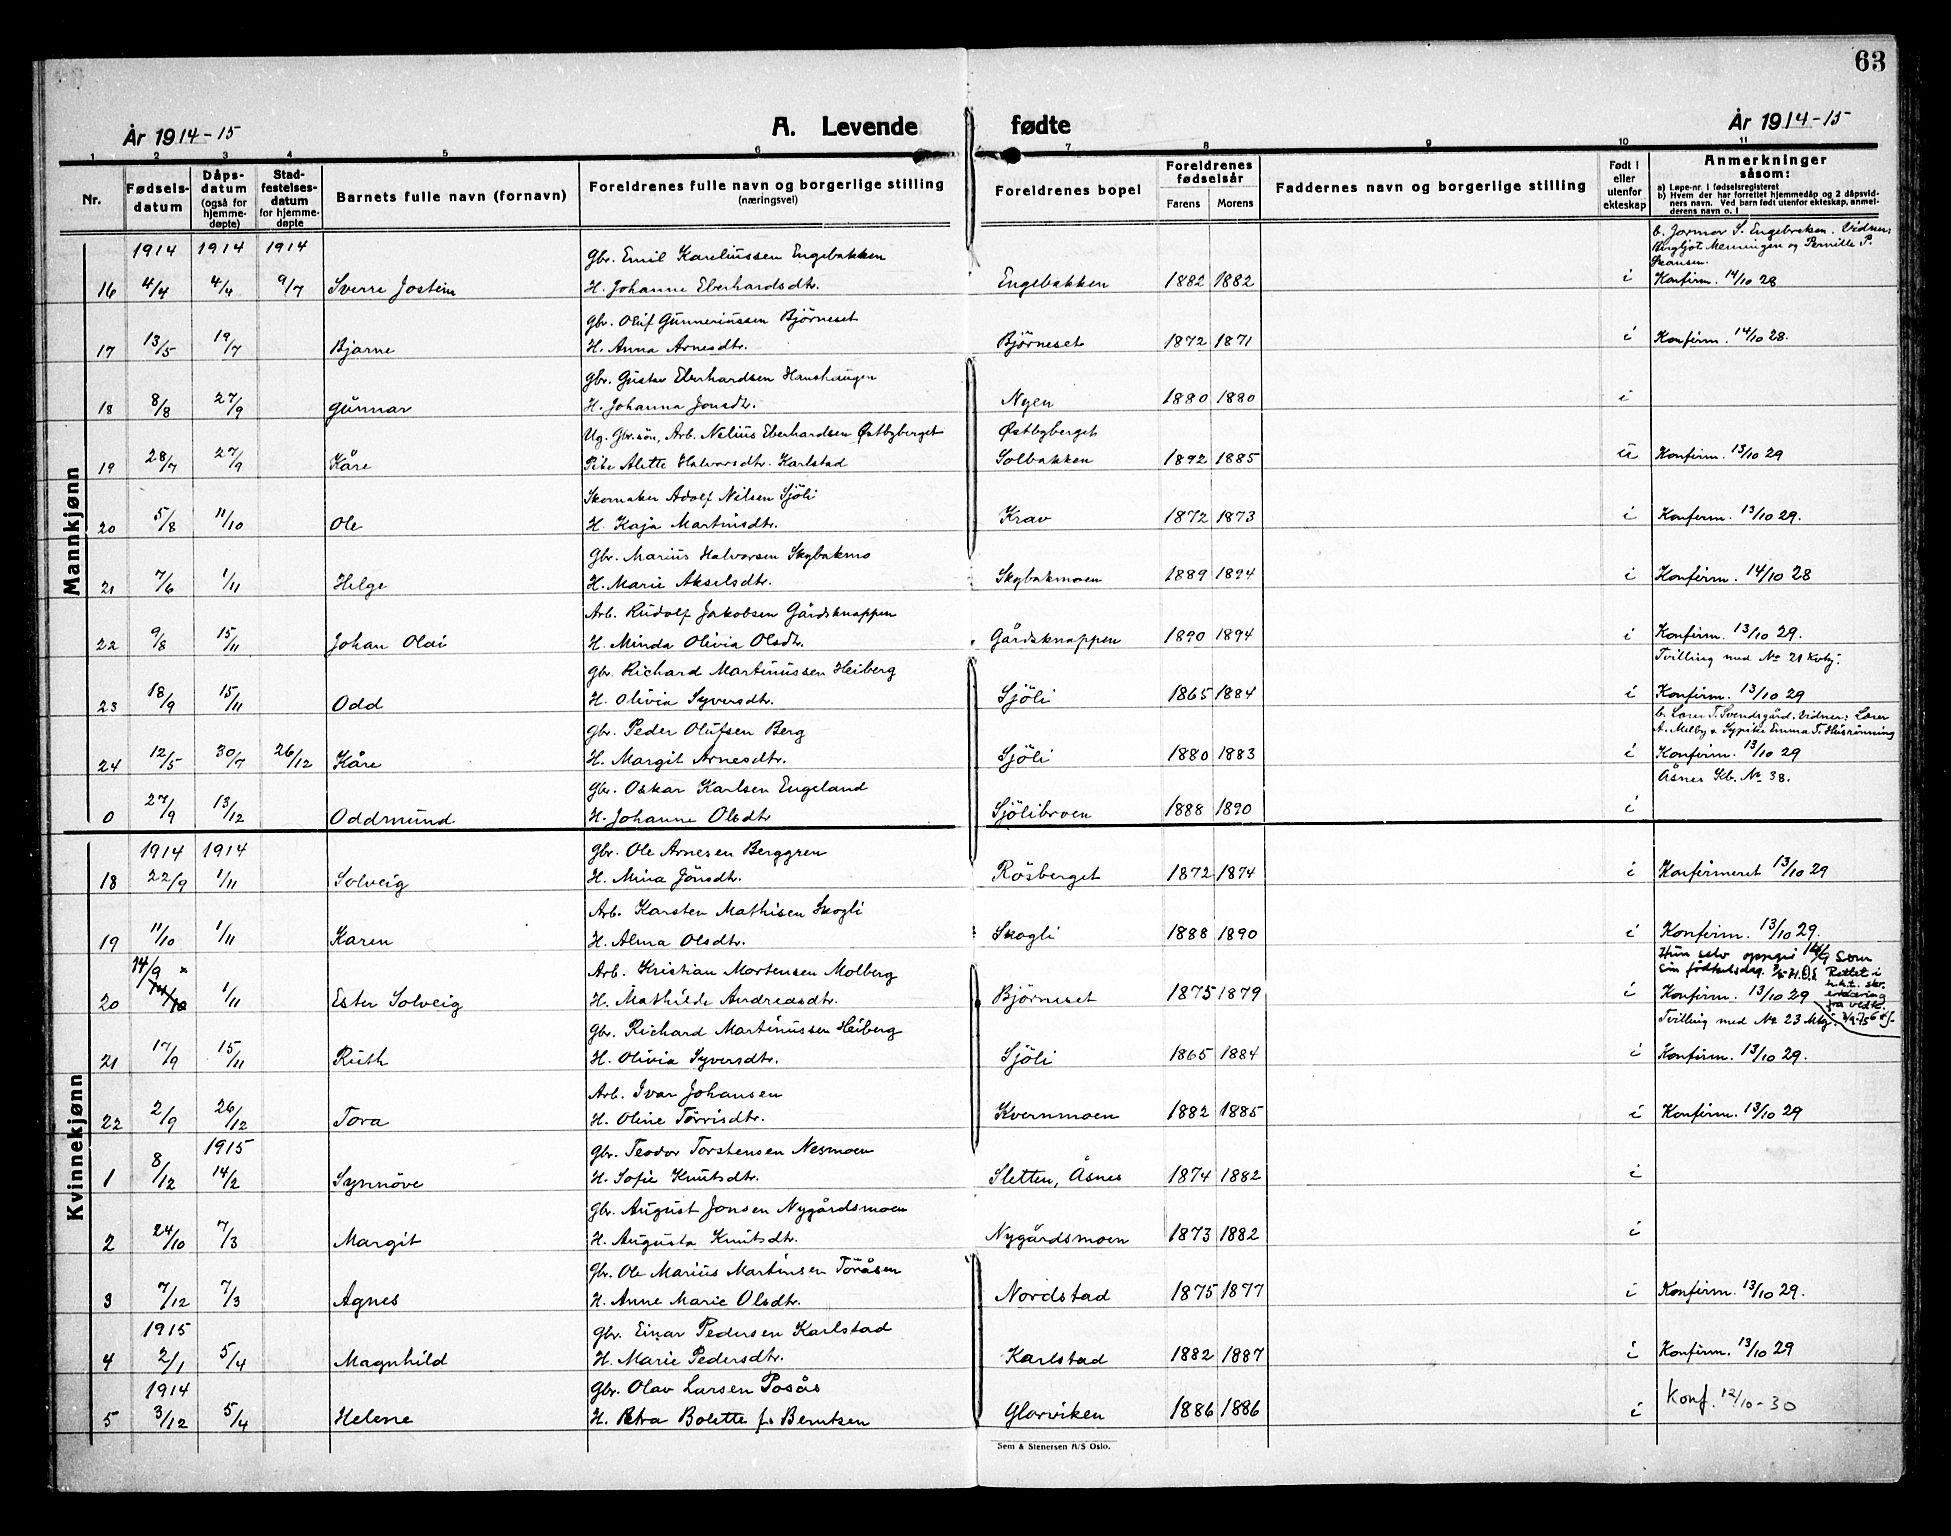 63
År 1914-15 A. Levende fødte År 1914-15
1 2 3 4 5 6 7 8 9 10 11
Nr. Fødsels-datum Dåps-datum (også for hjemme-døpte) Stad-festelses-datum for hjemme-døpte Barnets fulle navn (fornavn) Foreldrenes fulle navn og borgerlige stilling (næringsvei) Foreldrenes bopel Foreldrenes fødselsår Farens Morens Faddernes navn og borgerlige stilling Født i eller utenfor ekteskap Anmerkninger såsom:
a) Løpe-nr. i fødselsregisteret
b) Hvem der har forrettet hjemmedåp og 2 dåpsvidners navn. Ved barn født utenfor ekteskap, anmelderens navn o. l
Mannkjønn
b. Jormor S. Engebakken. Vidner:
1914 1914 1914 Gbr. Emil Kareliussen Engebakken Bergljot Menningen og Pernille P. Skansen.
16 4/4 4/4 9/7 Sverre Jostein H. Johanne Eberhardsdtr. Engebakken 1882 1882 i Konfirm. 14/10 28
Gbr. Oluf Gunneriussen Björneset
17 13/5 19/7 Bjarne H. Anna Arnesdtr. Björneset 1872 1871 i Konfirm. 14/10 28.
Gbr. Gustav Eberhardsen Hanshaugen
18 8/8 27/9 Gunnar H. Johanna Jonsdtr. Nyen 1880 1880 i
Ug. Gbr.søn, Arb. Nelius Eberhardsen Østbyberget Østbyberget
19 28/7 27/9 Kåre Pike Alette Halvorsdtr. Karlstad Solbakken 1892 1885 u Konfirm. 13/10 29
Skomaker Adolf Nilsen Sjöli
20 5/8 11/10 Ole H. Kaja Martinsdtr. Krav 1872 1873 i Konfirm. 13/10 29.
Gbr. Marius Halvorsen Skybakmo
21 7/6 1/11 Helge H. Marie Akselsdtr. Skybakmoen 1889 1894 i Konfirm. 14/10 28
Arb. Rudolf Jakobsen Gårdsknappen
22 9/8 15/11 Johan Olai H. Minda Olivia Olsdtr. Gårdsknappen 1890 1894 i Konfirm. 13/10 29.
Gbr. Richard Martinussen Heiberg Tvilling med No 21 Kvkj.
23 18/9 15/11 Odd H. Olivia Syversdtr. Sjöli 1865 1884 i Konfirm. 13/10 29
Gbr. Peder Olufsen Berg b. Lærer T. Svendsgård. Vidner: Lærer A. Melby & Sypike Emma T. Husrönning
24 12/5 30/7 26/12 Kåre H. Margit Arnesdtr. Sjöli 1880 1883 i Konfirm. 13/10 29
Gbr. Oskar Karlsen Engeland Åsnes Kb. No 38.
0 27/9 13/12 Oddmund H. Johanne Olsdtr Sjölibroen 1888 1890 i
Kvinnekjønn
1914 1914 Gbr. Ole Arnesen Berggren
18 22/9 1/11 Solveig H. Mina Jönsdtr. Rösberget 1872 1874 i Konfirmeret 13/10 29
Arb. Karsten Mathisen Skogli
19 11/10 1/11 Karen H. Alma Olsdtr. Skogli 1888 1890 i Konfirm. 13/10 29.
14/9 x Arb. Kristian Mortensen Molberg Hun selv oppgir 14/9 som sin födselsdag. Rettet i h.h.t. skr. erklæring fra vedk.
20 14/10 1/11 Ester Solveig H. Mathilde Andreasdtr. Björneset 1875 1879 i Konfirm. 13/10 29
Gbr. Richard Martinussen Heiberg Tvilling med No 23 Mkj.
21 17/9 15/11 Ruth H. Olivia Syversdtr. Sjöli 1865 1884 i Konfirm. 13/10 29.
Arb. Ivar Johansen
22 2/9 26/12 Tora H. Oline Törrisdtr. Kvernmoen 1882 1885 i Konfirm. 13/10 29
1915 Gbr. Teodor Torstensen Nesmoen
1 8/12 14/2 Synnöve H. Sofie Knutsdtr. Sletten, Åsnes 1874 1882 i
Gbr. August Jonsen Nygårdsmoen
2 24/10 7/3 Margit H. Augusta Knutsdtr. Nygårdsmoen 1873 1882 i
Gbr. Ole Marius Martinsen Toråsen
3 7/12 7/3 Agnes H. Anne Marie Olsdtr. Nordstad 1875 1877 i Konfirm. 13/10 29.
1915 Gbr. Einar Pedersen Karlstad
4 2/1 5/4 Magnhild H. Marie Pedersdtr. Karlstad 1882 1887 i Konfirm. 13/10 29
1914 Gbr. Olav Larsen Posås
5 3/12 5/4 Helene H. Petra Bolette f. Berntsen Glorviken 1886 1886 i Konf. 12/10-30
Sem & Stenersen A/S Oslo.